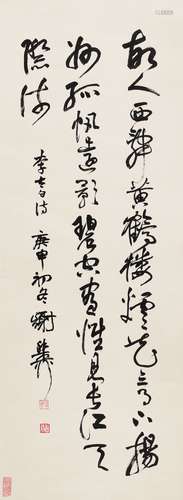 故人西辭黃鶴樓煙花三月下揚
州孤帆遠影碧空盡惟見長江天
際流
李太白詩 庚申初冬 謝稚柳